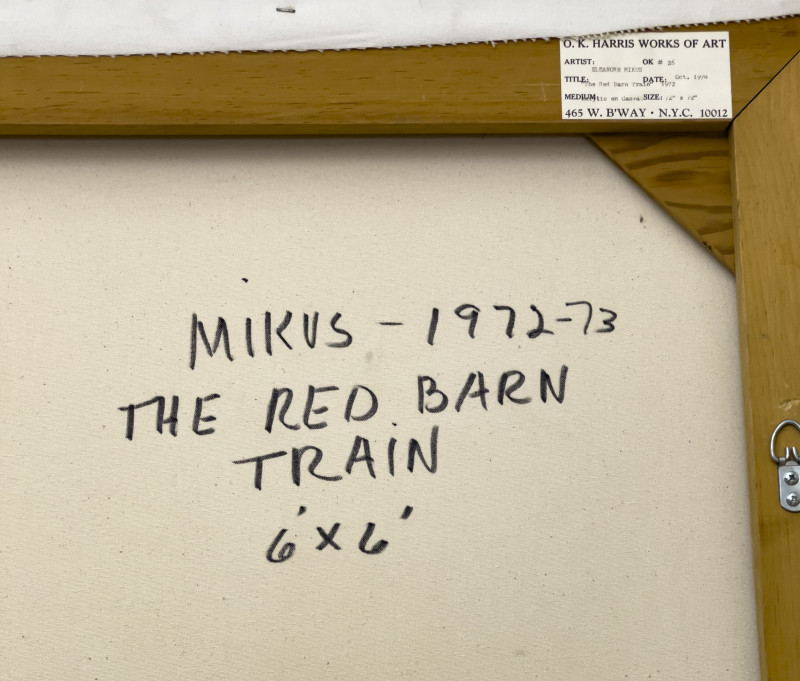 O. K. HARRIS WORKS OF ART
ARTIST: OK #
ELEANORE MIKUS
TITLE: DATE: Oct.
"The Red Barn Train" 1972
MEDIUM: on Canvas SIZE: x 72"
465 W. B'WAY • N.Y.C. 10012
MIKUS - 1972-73
THE RED BARN
TRAIN
6' x 6'